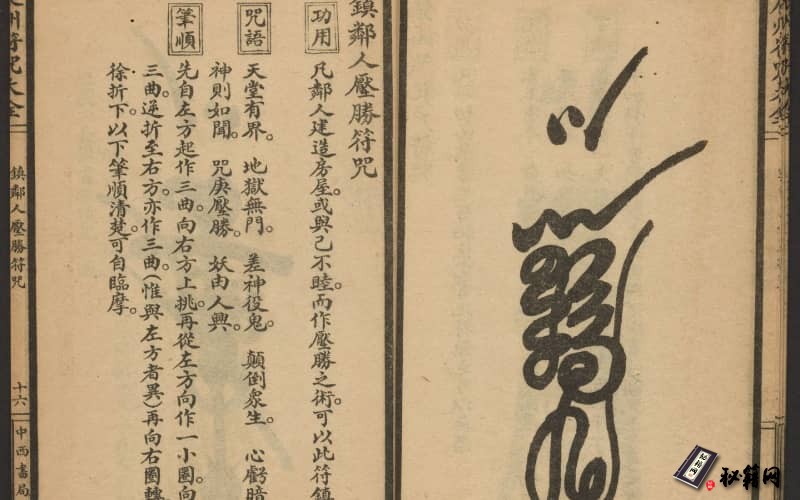 鎮鄰人壓勝符咒
功用
凡鄰人建造房屋。或與己不睦而作壓勝之術。可以此符鎮
咒語
天堂有界。地獄無門。差神役鬼。顛倒衆生。心虧暗
神則如聞。咒庚壓勝。妖由人興。
筆順
先自左方起作三曲。向右方上挑。再從左方向作一小圈向
三曲。逆折至右方。亦作三曲。(惟與左方者異)再向右圈轉
徐折下。以下筆順清楚。可自臨摩。
州符咒大全
鎮鄰人壓勝符咒
十六
中西書局
秘籍网